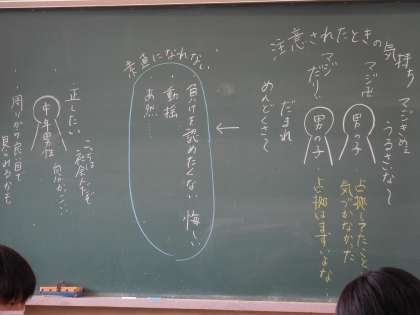 注意されたときの気持ち
マジきめぇ
うるさいな〜
マジ卍
マジ
だりぃ
男の子
男の子
占拠してたこと
気づかなかった
占拠はまずいよな
だまれ
めんどくさくて
←
素直になれない
負けを認めたくない 悔しい
・動揺
・あ然……
正したい
中年男性
ここは
社会人だぞ
良くない
・周りから良い目で
見られるかも